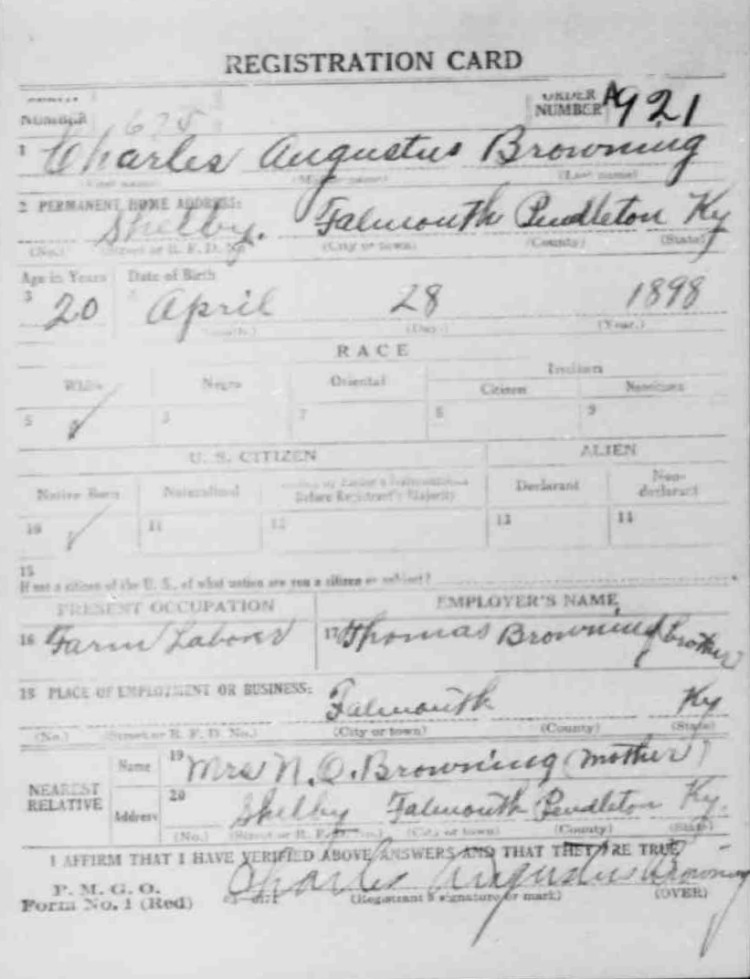 REGISTRATION CARD
NUMBER 675 ORDER NUMBER A921
1 Charles Augustus Browning
(Last name)
2 PERMANENT HOME ADDRESS:
Shelby. Falmouth Pendleton Ky
(No.) (Street or R. F. D. No.) (City or town) (County) (State)
Age in Years Date of Birth
3 20 April 28 1898
(Day.) (Year.)
RACE
White Negro Oriental Citizen
5 ✓ 7 8 9
U. S. CITIZEN ALIEN
Native Born Naturalized Before Registrant's Majority Declarant Non-declarant
10 ✓ 11 12 13 14
15
If not a citizen of the U. S., of what nation are you a citizen or subject?
PRESENT OCCUPATION EMPLOYER'S NAME
16 Farm Laborer 17 Thomas Browning (brother
18 PLACE OF EMPLOYMENT OR BUSINESS:
Falmouth Ky
(No.) (Street or R. F. D. No.) (City or town) (County) (State)
NEAREST RELATIVE
Name 19 Mrs N. O. Browning (mother)
Address 20 Shelby Falmouth Pendleton Ky.
(No.) (Street or R. F. D. No.) (City or town) (County) (State)
I AFFIRM THAT I HAVE VERIFIED ABOVE ANSWERS AND THAT THEY ARE TRUE
P. M. G. O.
Form No. 1 (Red) Charles Augustus Browning
(Registrant's signature or mark) (OVER)